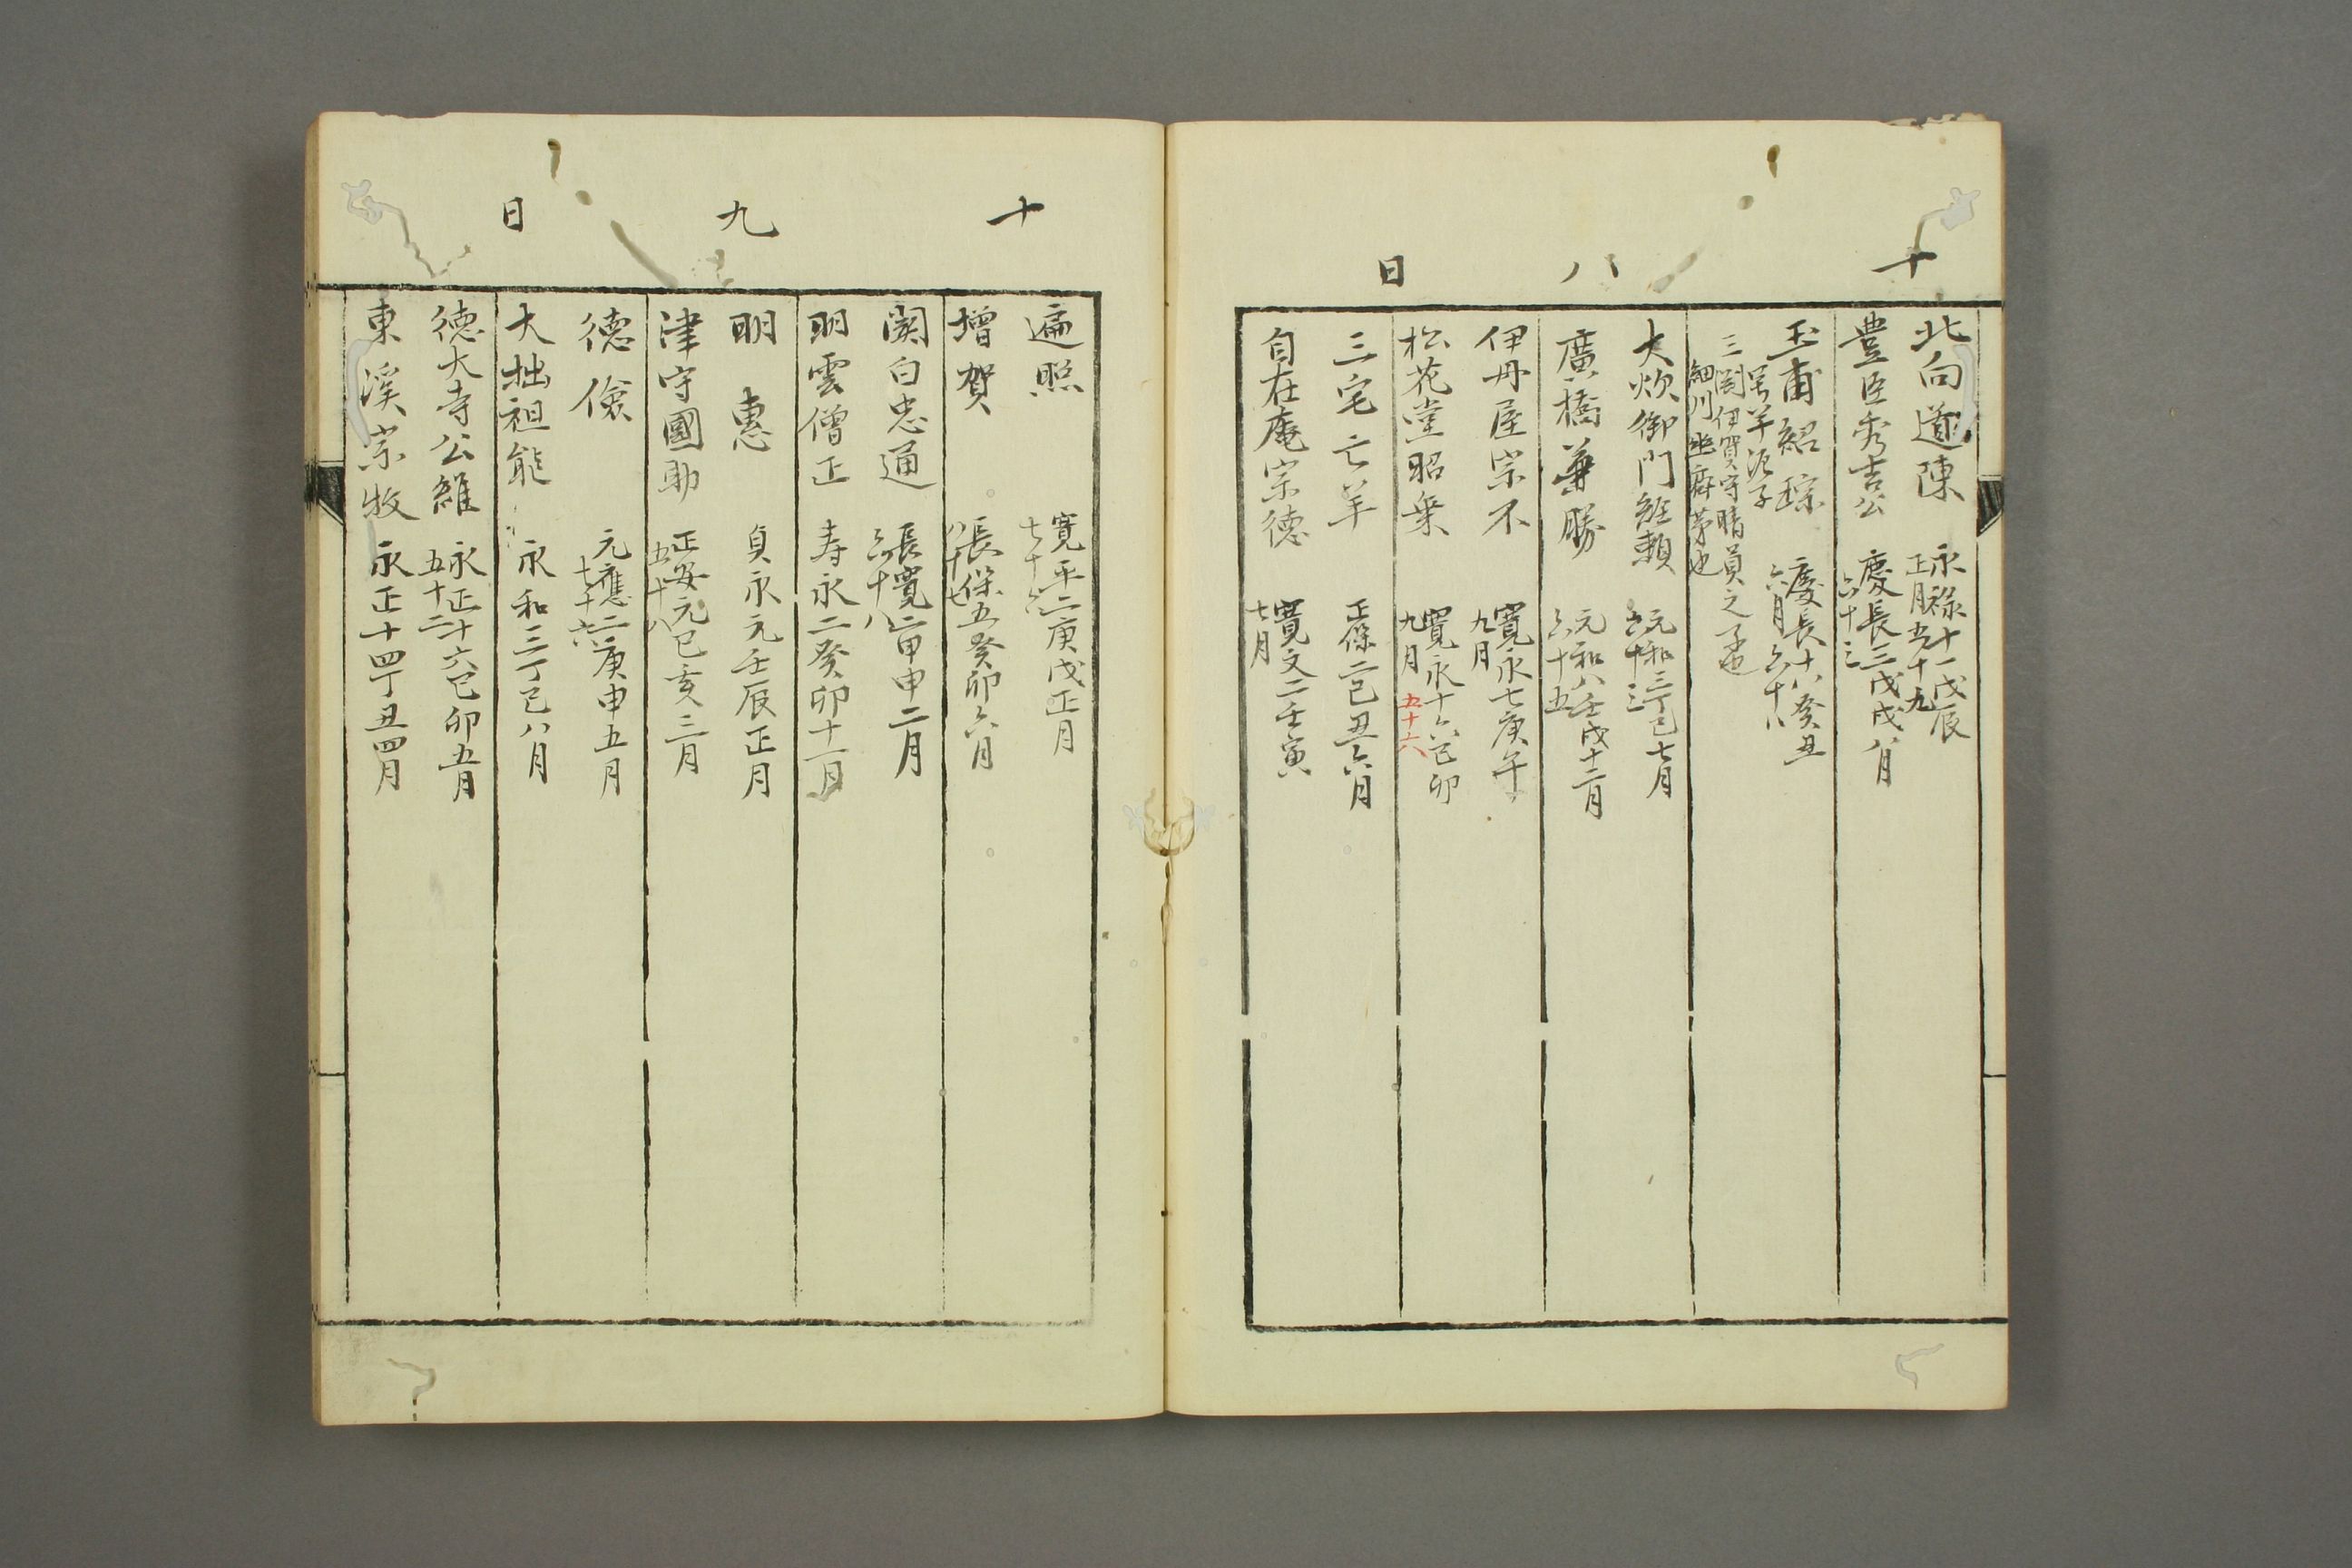 十八日
北向道陳 永禄十一戊辰
正月五十九
豊臣秀吉公 慶長三戊戌八月
六十三
玉甫紹琮 慶長十八癸丑
六月六十八
号半泥子
三淵伊賀守晴員之子也
細川幽齋茅也
大炊御門経頼 元和三丁巳七月
五十三
廣橋兼勝 元和八壬戌十二月
六十五
伊丹屋宗不 寛永七庚午
九月
松花堂昭乗 寛永十六己卯
九月 五十六
三宅亡羊 正保二己丑六月
自在庵宗徳 寛文二壬寅
七月
十九日
遍照 寛平二庚戌正月
七十六
増賀 長保五癸卯六月
八十七
関白忠通 長寛二甲申二月
六十八
明雲僧正 寿永二癸卯十一月
明恵 貞永元壬辰正月
津守國助 正安元己亥三月
五十八
徳儉 元應二庚申五月
七十六
大拙祖能 永和三丁巳八月
徳大寺公維 永正十六己卯五月
五十二
東溪宗牧 永正十四丁丑四月